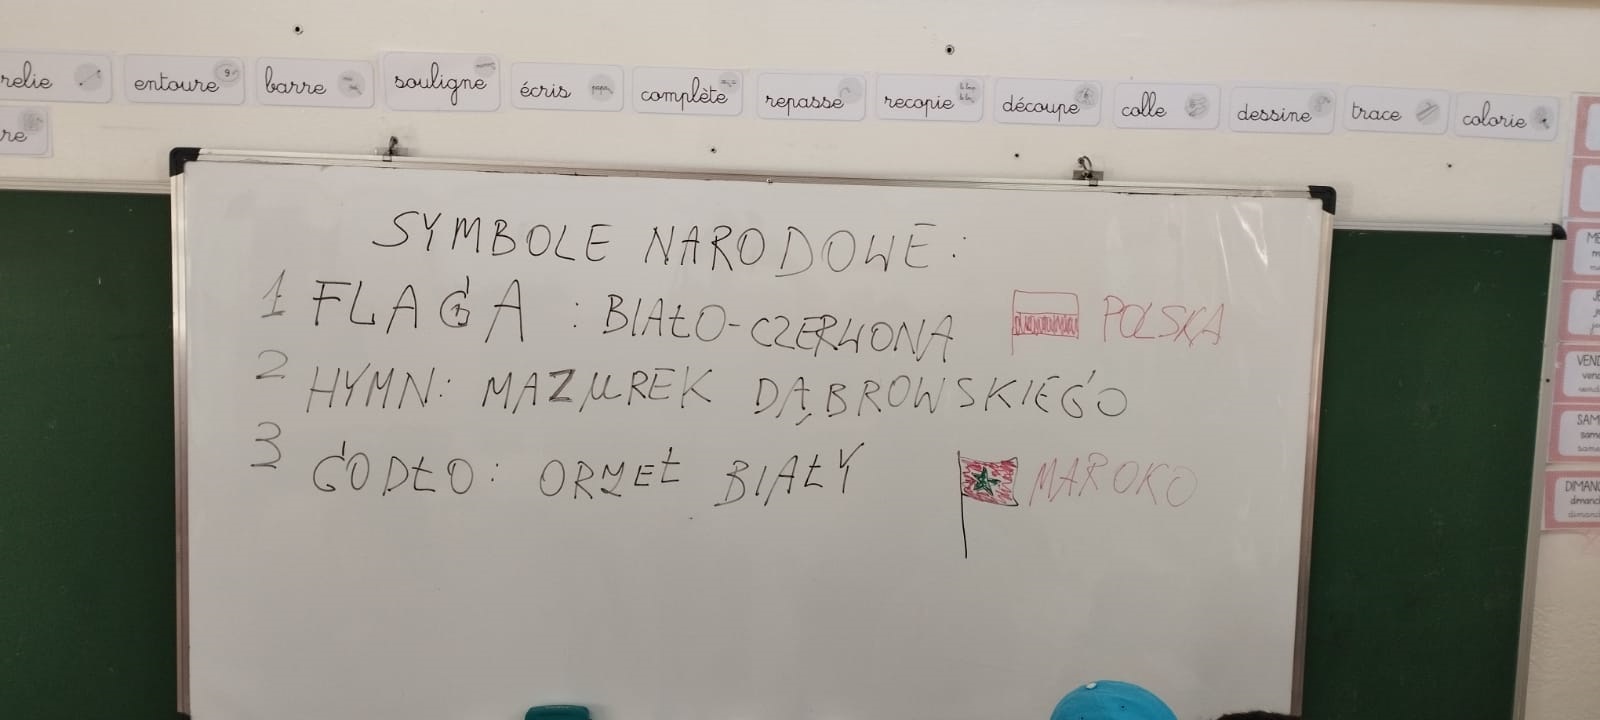 relie entoure barre souligne écris complète repasse recopie découpe colle dessine trace colorie
re
SYMBOLE NARODOWE:
1 FLAGA : BIAŁO-CZERWONA POLSKA
2 HYMN: MAZUREK DĄBROWSKIEGO
3 GODŁO: ORZEŁ BIAŁY MAROKO
VEND
SAM
DIMANC